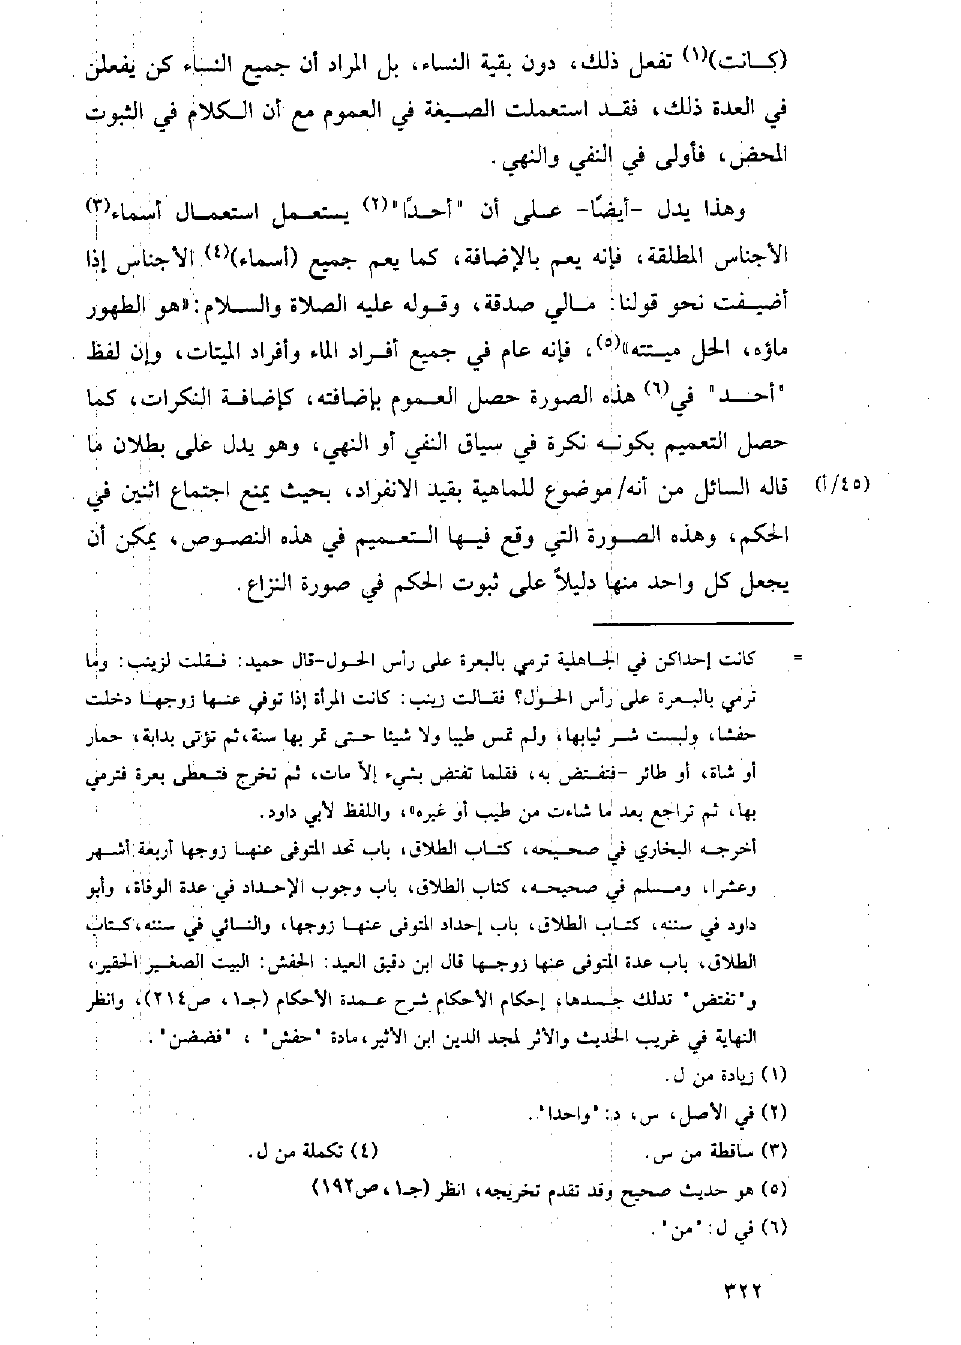 (كانت)(١) تفعل ذلك، دون بقية النساء، بل المراد أن جميع النساء كن يفعلن
في العدة ذلك، فقد استعملت الصيغة في العموم مع أن الكلام في الثبوت
المحض، فأولى في النفي والنهي.
وهذا يدل -أيضًا- على أن "أحدًا"(٢) يستعمل استعمال أسماء(٣)
الأجناس المطلقة، فإنه يعم بالإضافة، كما يعم جميع (أسماء)(٤) الأجناس إذا
أضيفت نحو قولنا: مالي صدقة، وقوله عليه الصلاة والسلام: «هو الطهور
ماؤه، الحل ميتته»(٥)، فإنه عام في جميع أفراد الماء وأفراد الميتات، وإن لفظ
"أحد" في(٦) هذه الصورة حصل العموم بإضافته، كإضافة النكرات، كما
حصل التعميم بكونه نكرة في سياق النفي أو النهي، وهو يدل على بطلان ما
قاله السائل من أنه/ موضوع للماهية بقيد الانفراد، بحيث يمنع اجتماع اثنين في (٤٥/أ)
الحكم، وهذه الصورة التي وقع فيها التعميم في هذه النصوص، يمكن أن
يجعل كل واحد منها دليلاً على ثبوت الحكم في صورة النزاع.
= كانت إحداكن في الجاهلية ترمي بالبعرة على رأس الحول-قال حميد: فقلت لزينب: وما
ترمي بالبعرة على رأس الحول؟ فقالت زينب: كانت المرأة إذا توفي عنها زوجها دخلت
حفشا، ولبست شر ثيابها، ولم تمس طيبا ولا شيئا حتى تمر بها سنة، ثم تؤتى بدابة، حمار
أو شاة، أو طائر -فتفتض به، فقلما تفتض بشيء إلا مات، ثم تخرج فتعطى بعرة فترمي
بها، ثم تراجع بعد ما شاءت من طيب أو غيره»، واللفظ لأبي داود.
أخرجه البخاري في صحيحه، كتاب الطلاق، باب تحد المتوفى عنها زوجها أربعة أشهر
وعشرا، ومسلم في صحيحه، كتاب الطلاق، باب وجوب الإحداد في عدة الوفاة، وأبو
داود في سننه، كتاب الطلاق، باب إحداد المتوفى عنها زوجها، والنسائي في سننه، كتاب
الطلاق، باب عدة المتوفى عنها زوجها قال ابن دقيق العيد: الحفش: البيت الصغير الحقير،
و"تفتض" تدلك جسدها، إحكام الأحكام شرح عمدة الأحكام (جـ١، ص٢١٤)، وانظر
النهاية في غريب الحديث والأثر لمجد الدين ابن الأثير، مادة "حفش"، "فضض".
(١) زيادة من ل.
(٢) في الأصل، س، د: "واحدا".
(٣) ساقطة من س. (٤) تكملة من ل.
(٥) هو حديث صحيح وقد تقدم تخريجه، انظر (جـ١، ص١٩٢)
(٦) في ل: "من".
٣٢٢